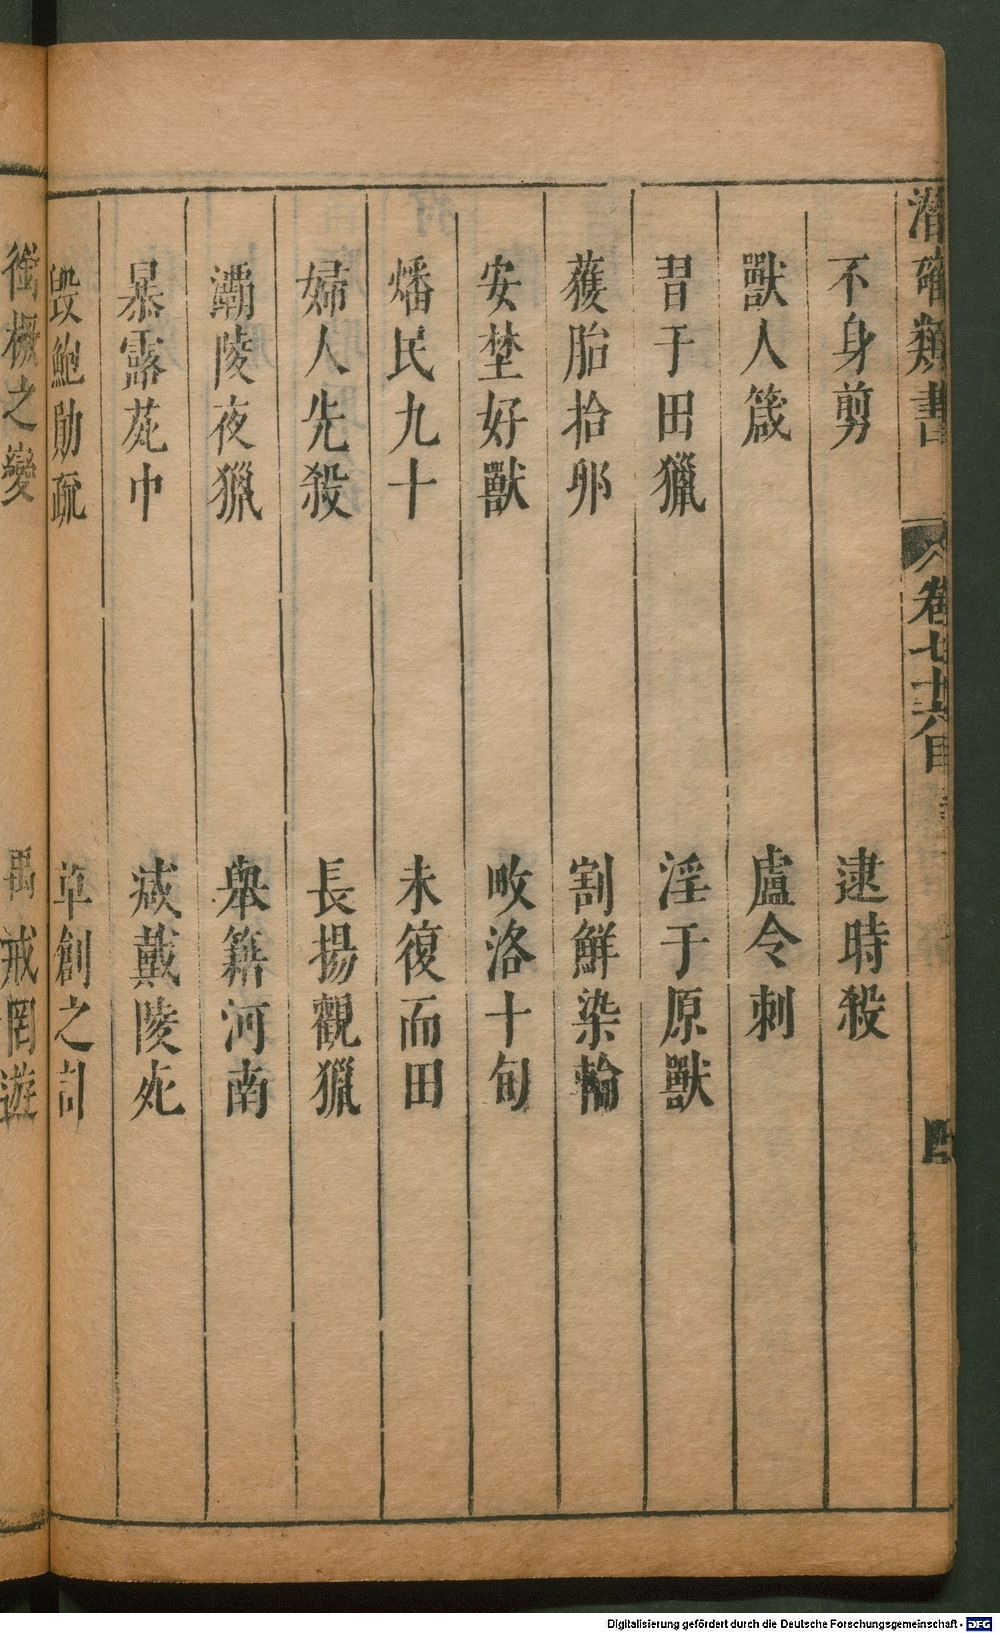 潛確類書 卷七十六目 四
不身剪 逮時殺
獸人箴 盧令刺
昔于田獵 淫于原獸
獲胎拾卵 割鮮染輪
安埜好獸 畋洛十旬
燔民九十 未復而田
婦人先殺 長揚觀獵
灞陵夜獵 舉籍河南
暴露苑中 戴陵
毀鮑勛疏 草創之
銜橛之變 禹戒罔遊
Digitalisierung gefördert durch die Deutsche Forschungsgemeinschaft - DFG